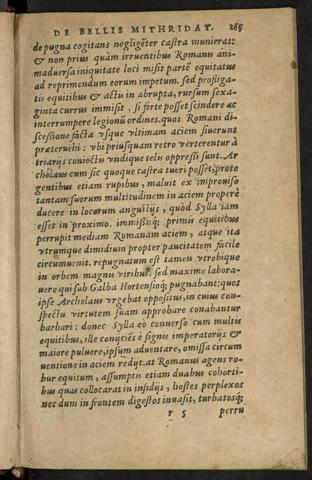 DE BELLIS MITHRIDAT. 265
de pugna cogitans negligẽter castra munierat:
& non prius quàm irruentibus Romanus ani-
maduersa iniquitate loci misit partẽ equitatus
ad reprimendum eorum impetum. sed profliga-
tis equitibus & actis in abrupta, rursum sexa-
ginta currus immisit, si forte posset scindere ac
interrumpere legionũ ordines. quos Romani di-
scessione facta vsque vltimam aciem siuerunt
præteruehi: vbi priusquam retro verterentur à
triarijs coniectis vndique telis oppressi sunt. Ar
chelaus cum sic quoque castra tueri posset, prote
gentibus etiam rupibus, maluit ex improuiso
tantam suorum multitudinem in aciem properè
ducere in locorum angustijs, quòd Sylla iam
esset in proximo. immissisq; primis equitibus
perrupit mediam Romanam aciem, atque ita
vtrumque dimidium propter paucitatem facile
circumuenit. repugnatum est tamen vtrobique
in orbem magnis viribus. sed maxime labora-
uere qui sub Galba Hortensioq; pugnabant: quos
ipse Archelaus vrgebat oppositus, in cuius con-
spectu virtutem suam approbare conabantur
barbari: donec Sylla eò conuerso cum multis
equitibus, ille conijciẽs è signis imperatorijs &
maiore puluere, ipsum aduentare, omissa circum
uentione in aciem redijt. at Romanus agens ro-
bur equitum, assumptis etiam duabus cohorti-
bus quas collocarat in insidijs, hostes perplexos
nec dum in frontem digestos inuasit, turbatosq;
r 5 perru